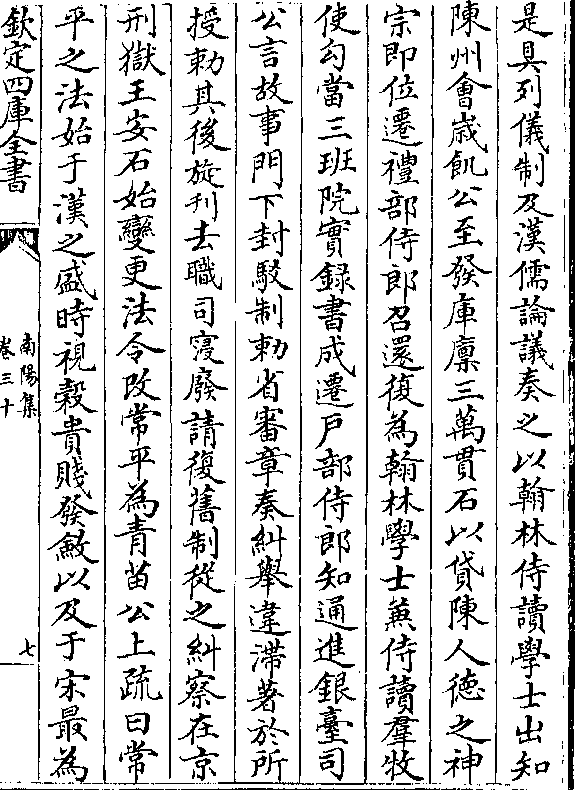 是具列儀制及漢儒論議奏之以翰林侍讀學士出知
陳州會歲飢公至發庫廩三萬貫石以貸陳人德之神
宗即位遷禮部侍郎召還復為翰林學士兼侍讀羣牧
使勾當三班院實録書成遷戶部侍郎知通進銀臺司
公言故事門下封駁制勅省審章奏糾舉違滯著於所
授勅其後旋刋去職司寖廢請復舊制從之糾察在京
刑獄王安石始變更法令改常平為青苗公上疏曰常
平之法始于漢之盛時視穀貴賤發斂以及于宋最為
欽定四庫全書
南陽集
卷三十
七